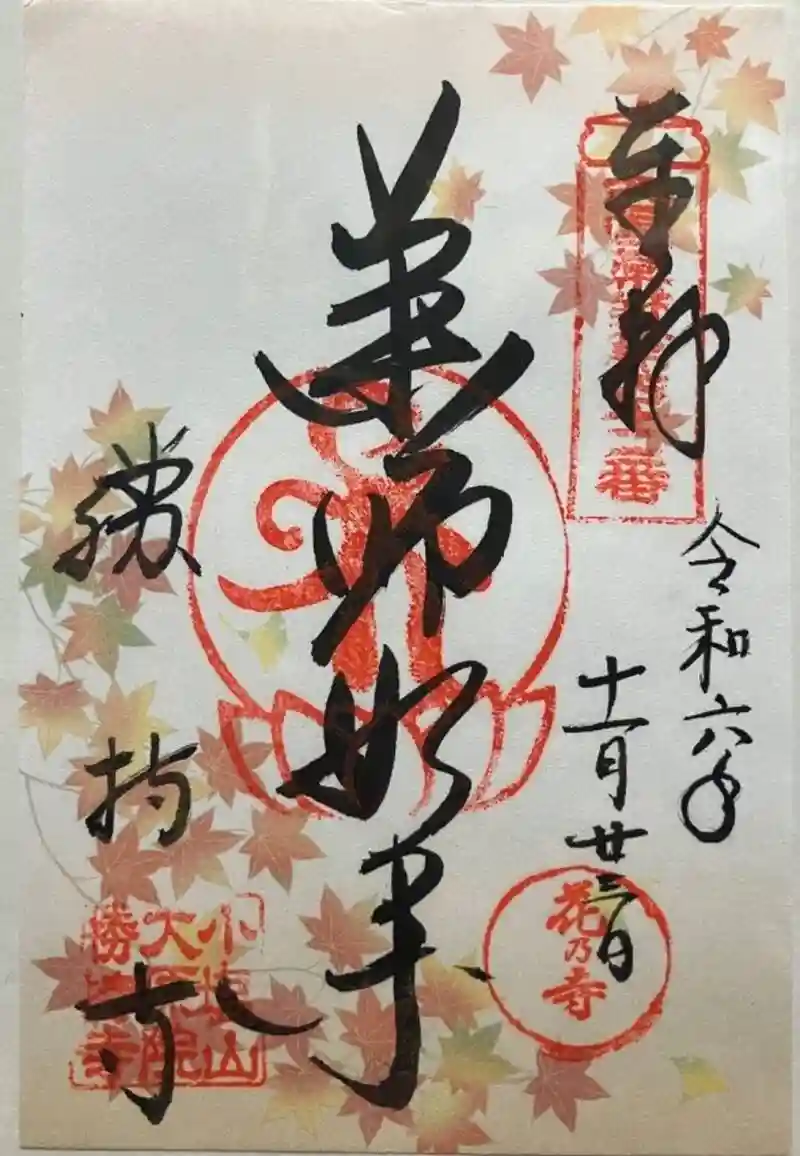 奉拝
令和六年
十一月廿三日
薬師如来
勝持寺
花乃寺
小塩山
大原院
勝持寺